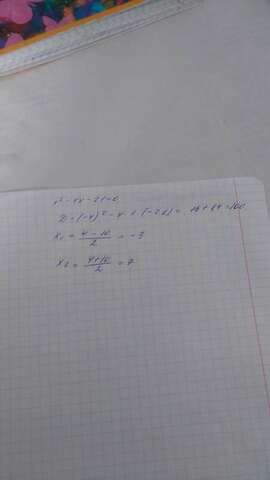 x² - 4x - 21 = 0
D = (-4)² - 4 · (-21) = 16 + 84 = 100
x₁ = (4 - 10)/2 = -3
x₂ = (4 + 10)/2 = 7